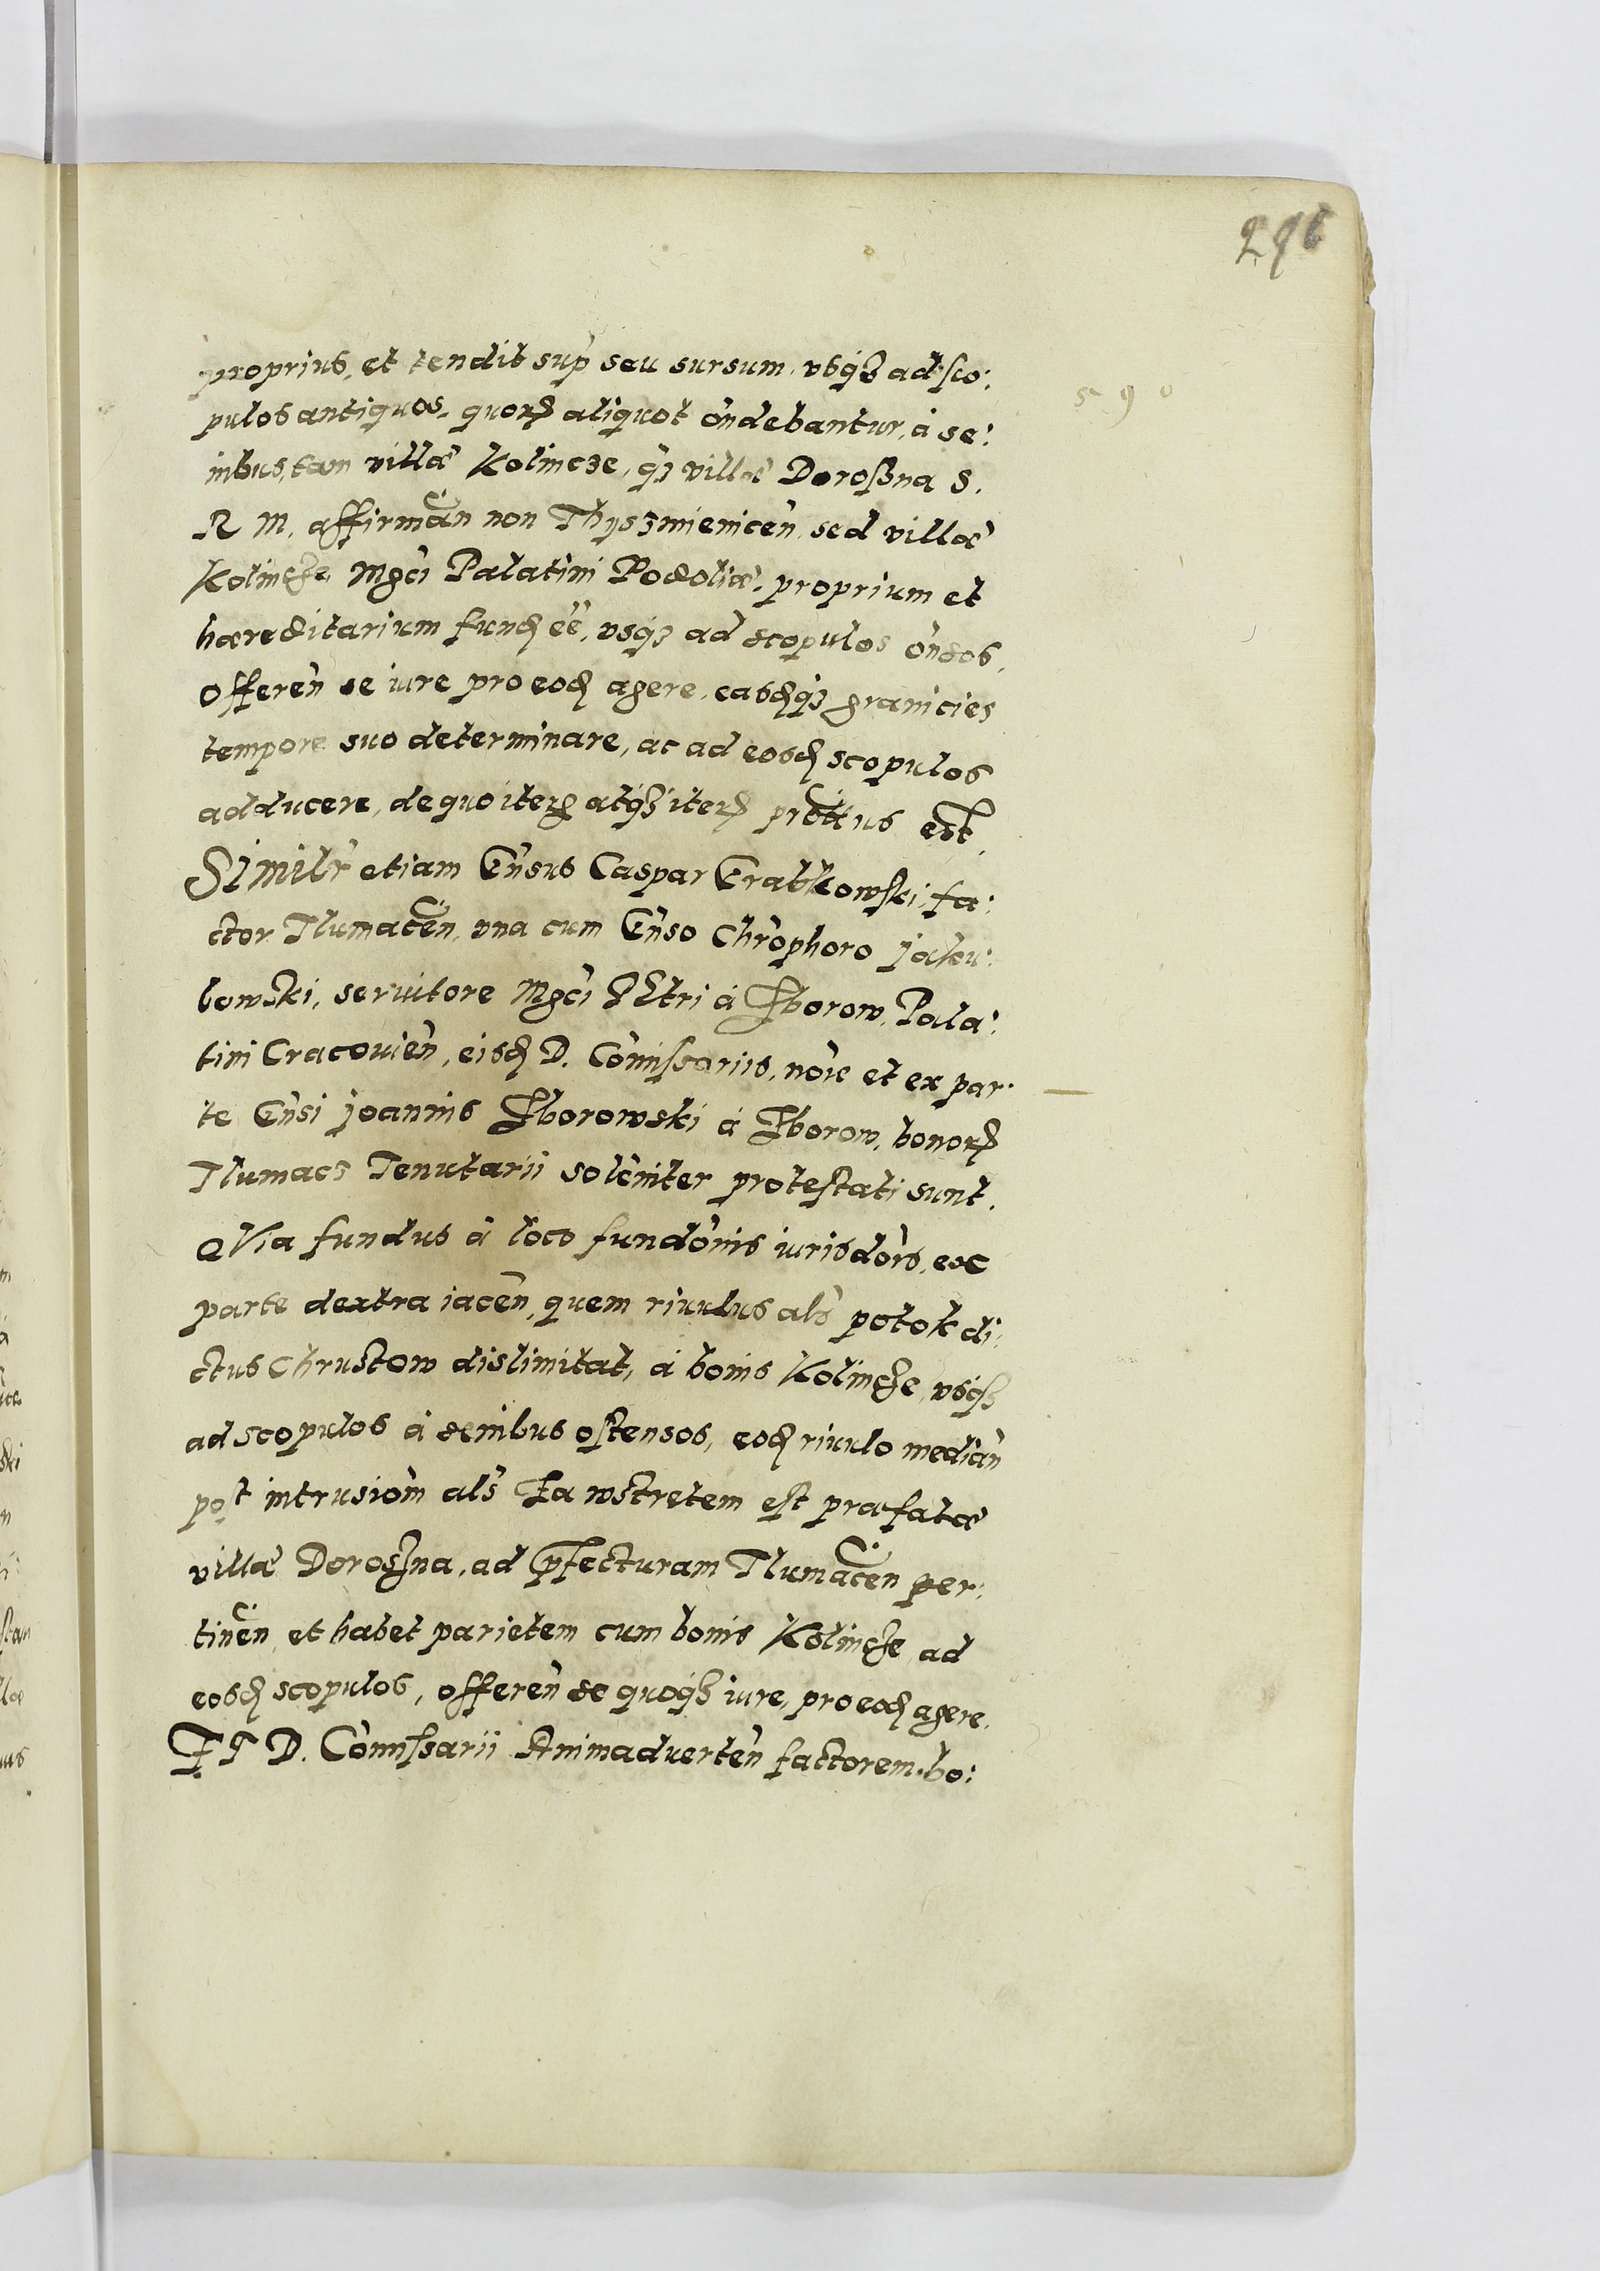 296
590
proprius, et tendit sup̀ seu sursum, vsqꝫ ad sco:
pulos antiquos, quorꝝ aliquot òndebantur, à se:
nibus, tam villæ Kolincze, q̀ꝫ villæ Doroszna S.
R M. affirmàn non Thyszmienicèn, sed villæ
Kolincze Mgci Palatini Podoliæ, proprium et
hæreditarium fundͫ eè, vsqꝫ ad scopulos òndos,
offerèn se iure pro eodͫ agere, easdͫqꝫ granicies
tempore suo determinare, ac ad eosdͫ scopulos
adducere, de quo iterꝝ atqꝫ iterꝝ prottus est.
Similr̀ etiam Gǹsus Caspar Grabkowski, fa:
ctor Tlumacèn, vna cum Gǹso Chròphoro Jaku:
bowski, seruitore Mgci PEtri à Zborow, Pala:
tini Cracouièn, eisdͫ D. Còmissariis, nòie et ex par:
te Gǹsi Joannis Zborowski à Zborow, bonorꝝ
Tlumacz Tenutarii solèniter protestati sunt.
QVia fundus à loco fundònis iurisdòis, ex
parte dextra iacèn, quem riuulus als̀ potok di:
ctus Chrustow dislimitat, à bonis Kolincze, vsqꝫ
ad scopulos à senibus ostensos, eodͫ riuulo mediàn
post intrusiòm als̀ Za wstretem est præfatæ
villæ Doroszna, ad p̄fecturam Tlumacèn per:
tinèn, et habet parietem cum bonis Kolincze ad
eosdͫ scopulos, offerèn se quoqꝫ iure, pro eodͫ agere.
D. Còmissarii Animaduertèn factorem bo: